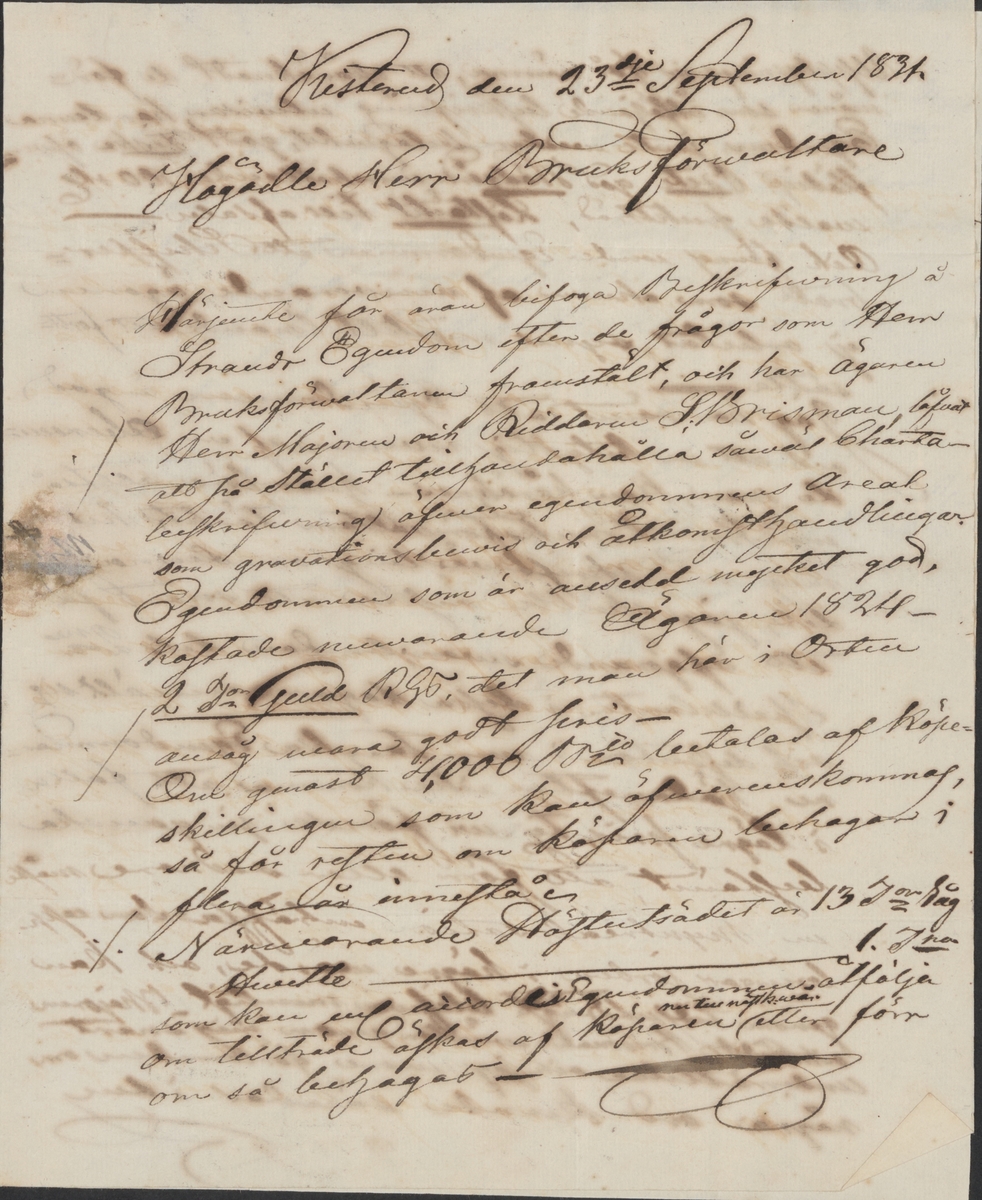 Risterud den 23dje September 1834.
Högädle Herr Bruksförwaltare
Härjemte får äran bifoga Beskrifwning å
Strands Egendom efter de frågor som Herr
Bruksförwaltaren framstält, och har ägaren
Herr Majoren och Riddaren S. Brisman, låfvat
att på Stället tillhandahålla såwäl Charta-
beskrifwning öfwer egendommens Areal
som gravationsbewis och Åtkomsthandlingar.
Egendommen som är ansedd mycket god,
kostade nuwarande Ägaren 1824 -
2 Tnr Guld RGS, det man här i Orten
ansåg wara godt pris -
Om genast 4,000 betalas af köpe=
skillingen som kan öfwerenskommas,
så får resten om köparen behagar i
flera år innestå
Närwarande Höstutsädet är 13 Tnr Råg
Hwette 1. Tna
som kan enl. accord Egendommen åtfölja
om tillträde äskas af köparen eller förr
om så behagas -